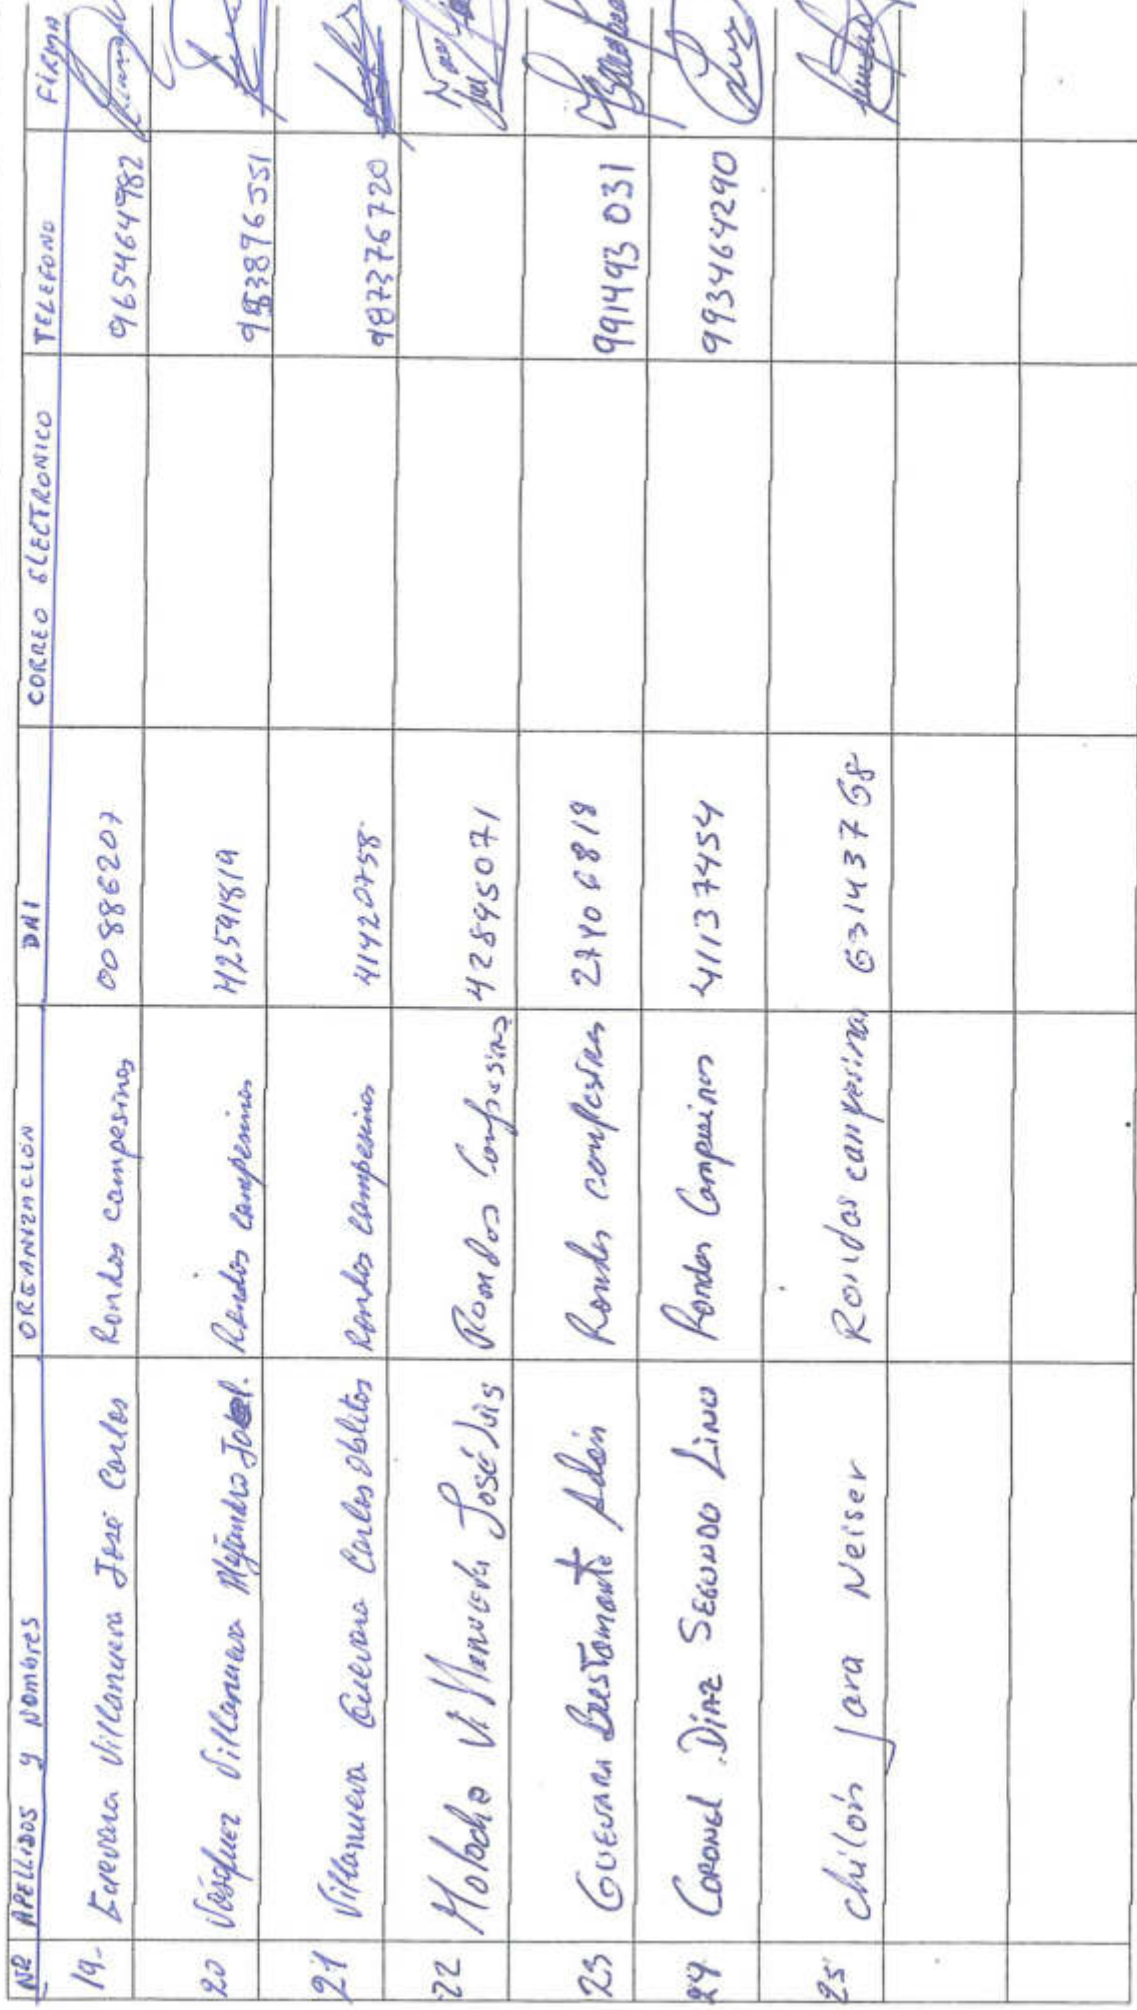 Nº APELLIDOS y Nombres ORGANIZACION DNI CORREO ELECTRONICO TELEFONO FIRMA
19- Guevara Villanueva José Carlos Rondas campesinas 00886207 965464982
20 Vásquez Villanueva Alejandro Joel. Rondas campesinas 42591819 983896551
21 Villanueva Guevara Carlos Oblitos Rondas campesinas 41420758 987376720
22 Holocho Villanueva José Luis Rondas Campesinas 42895071
23 GUEVARA Bustamante Adán Rondas campesinas 27406818 991493 031
24 CORONEL DÍAZ SEGUNDO LINO Rondas Campesinas 41137454 993464290
25 chilón Jara Neiser Rondas campesinas 63143768